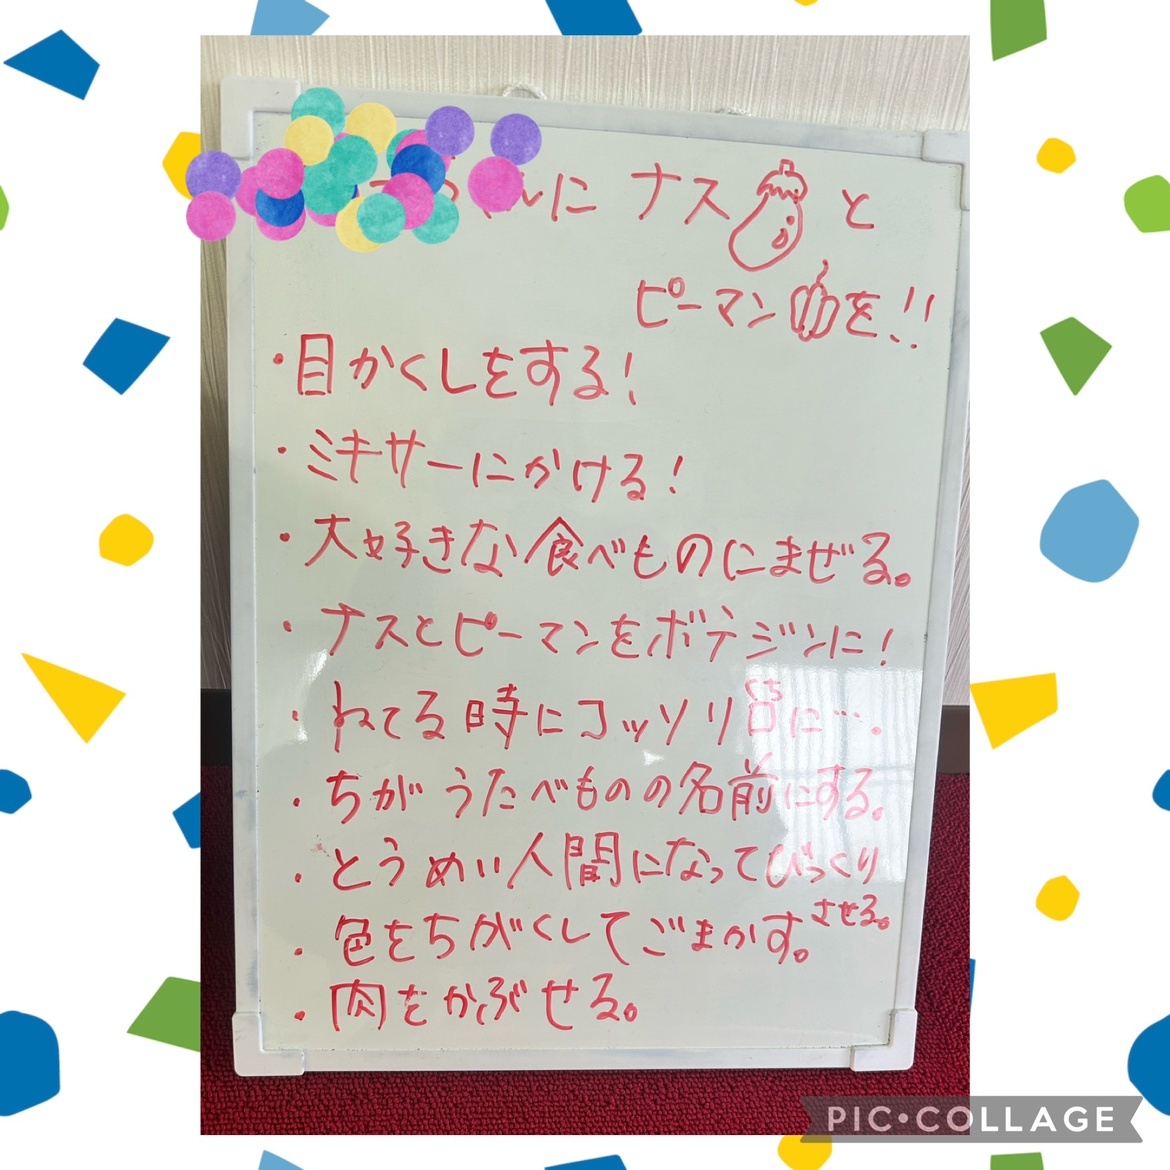 んに ナス と
ピーマン を!!
・目かくしをする!
・ミキサーにかける!
・大好きな食べものにまぜる。
・ナスとピーマンをボテジンに!
・ねてる時にコッソリ口に…。
くち
・ちがうたべものの名前にする。
・とうめい人間になってびっくり
させる。
・色をちがくしてごまかす。
・肉をかぶせる。
PIC•COLLAGE